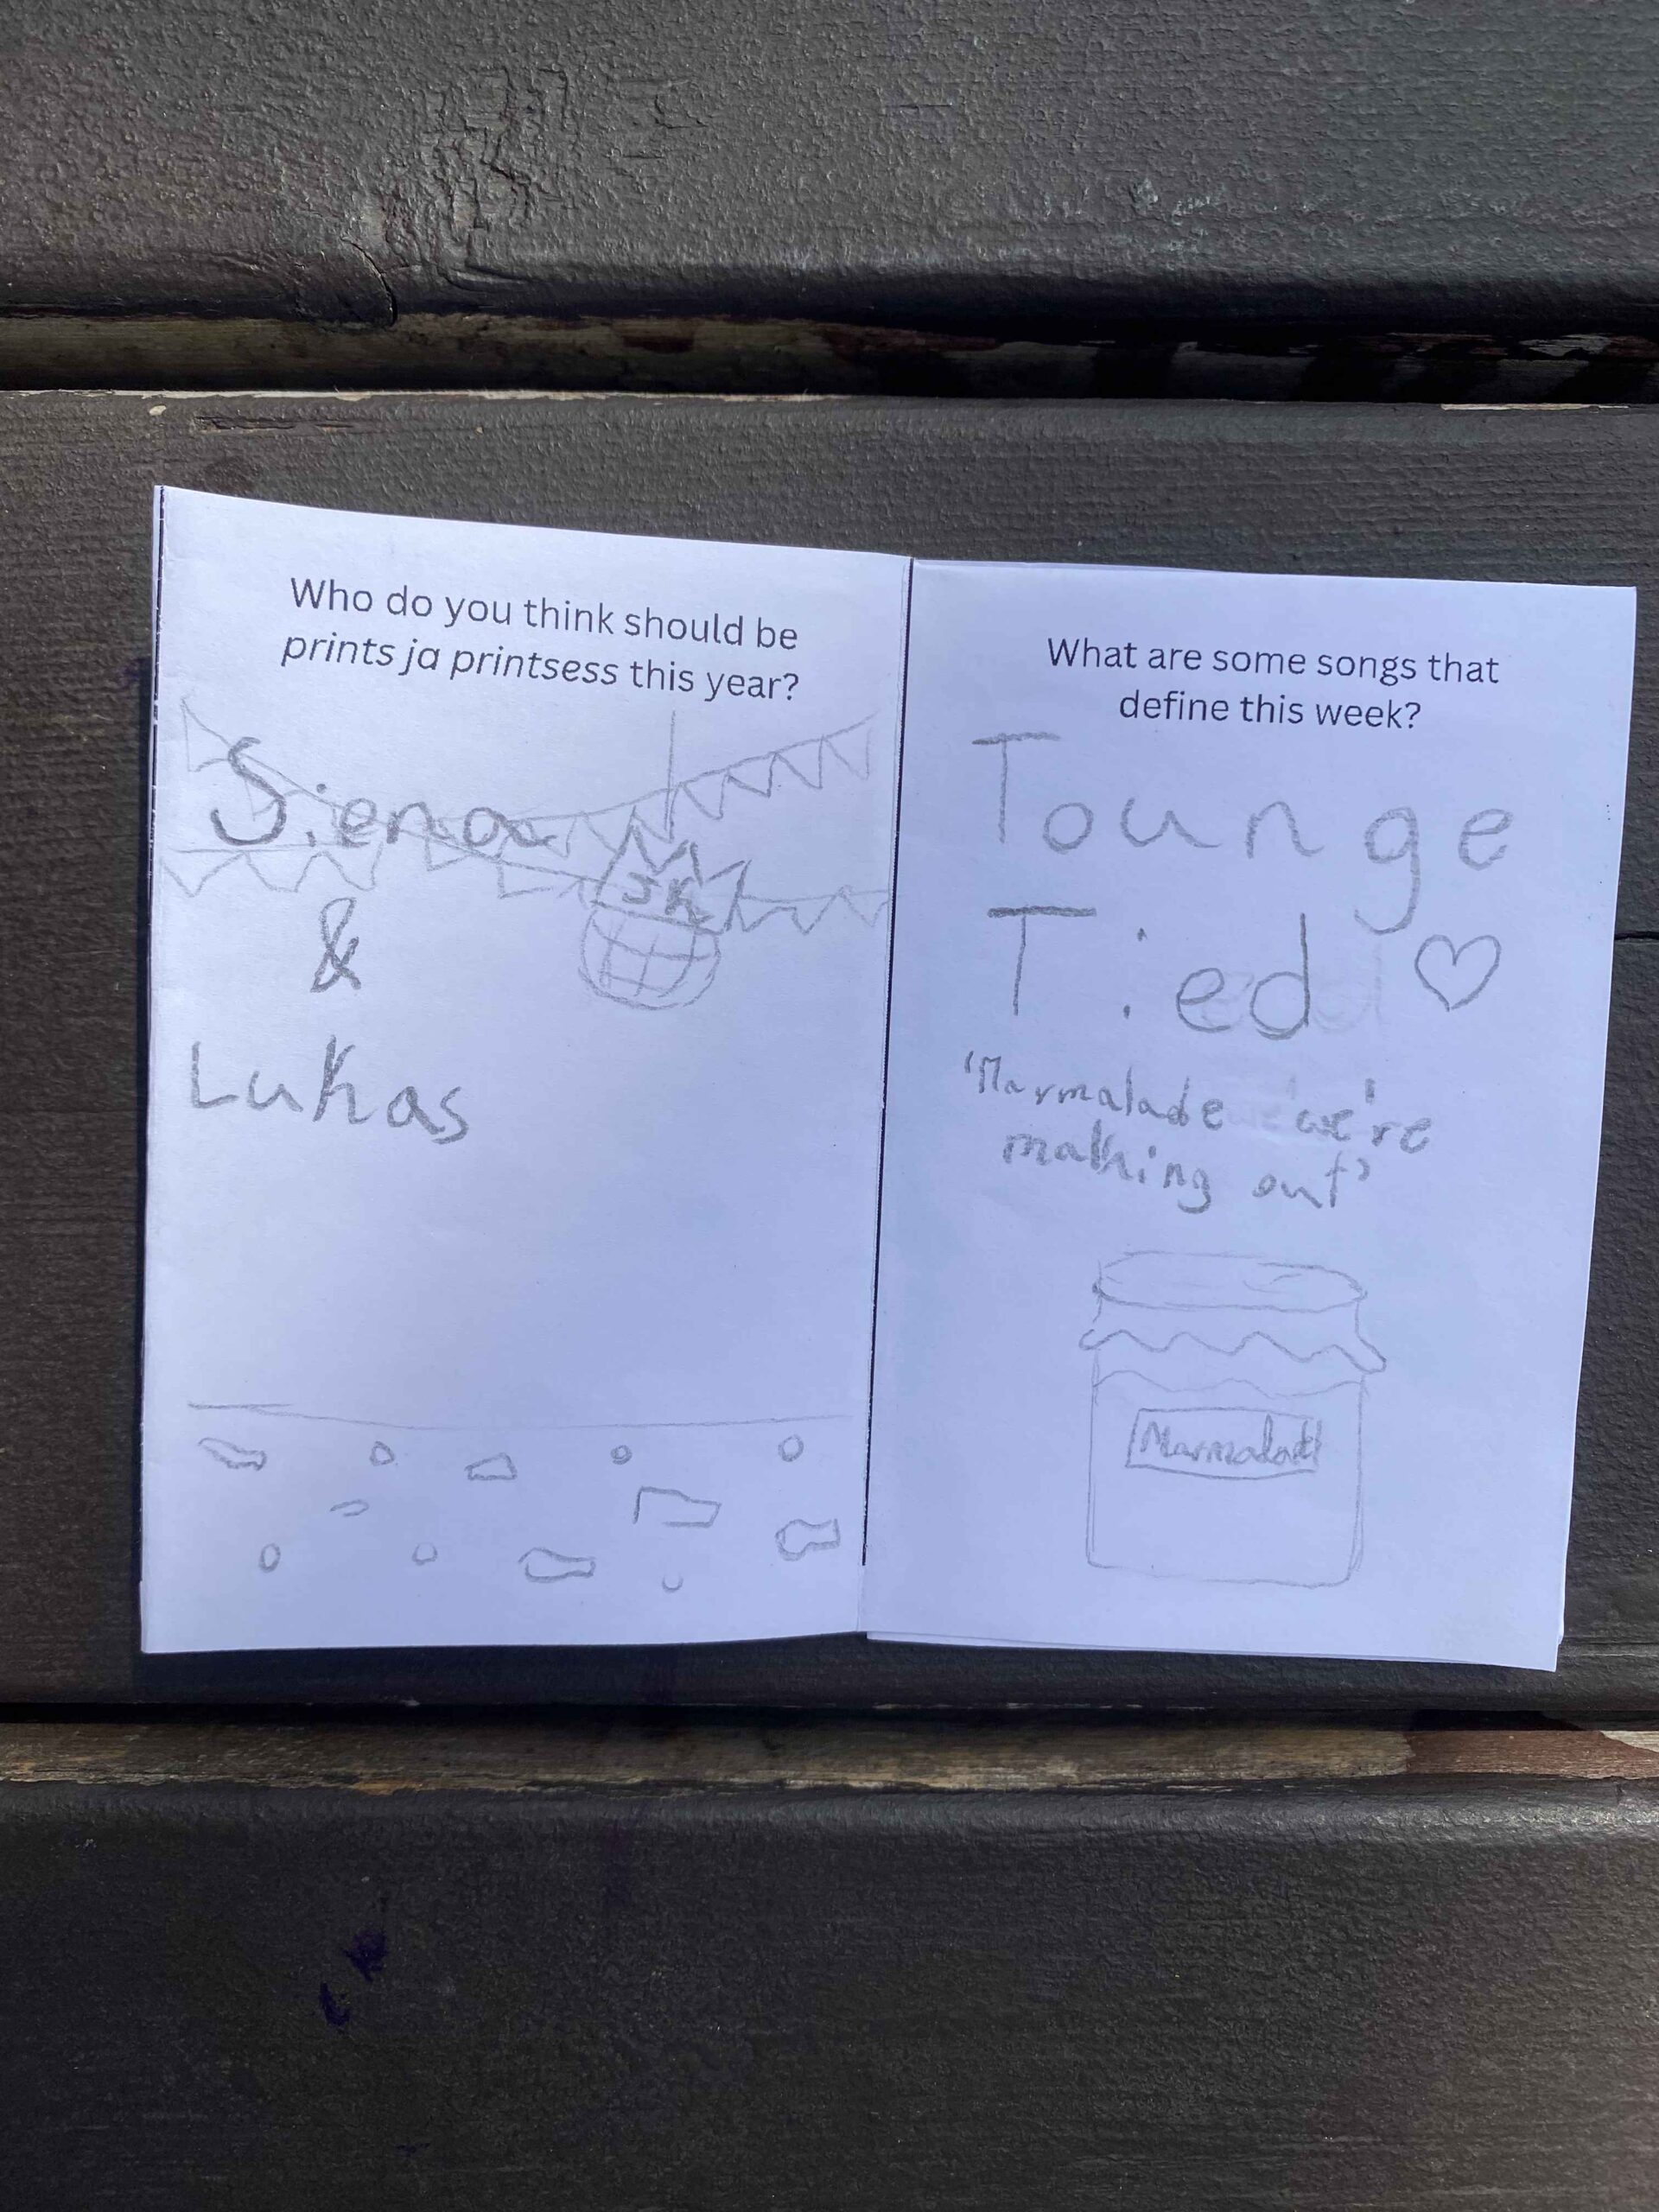 Who do you think should be
prints ja printsess this year?
Siena
JK
&
Lukas
What are some songs that
define this week?
Tounge
Tied
'Marmalade we're
making out'
Marmalade